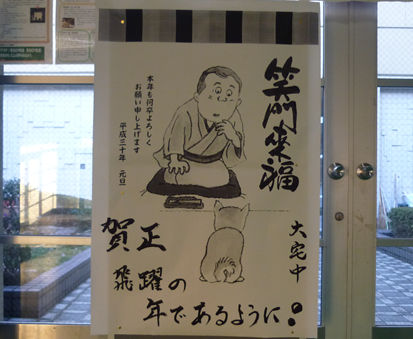 笑門来福
本年も何卒よろしく
お願い申し上げます
平成三十年 元旦
大宅中
賀正
飛躍の
年であるように!